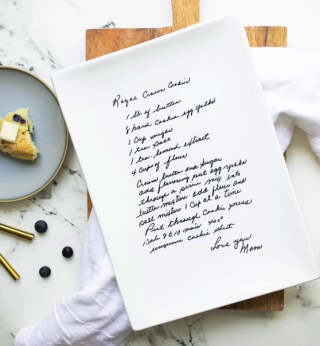 Royal Crown Cookies
1 lb of butter
8 hard cookie egg yolks
1 Cup sugar
1 tsp salt
1 tsp almond extract
4 Cups flour
Cream butter and sugar
add flavoring put egg yolks
through a sieve mix into
butter mixture add flour and
salt mixture 1 Cup at a time
Put through Cookie press
Bake 8 to 10 min 400°
ungrease cookie sheet
Love you
Mom